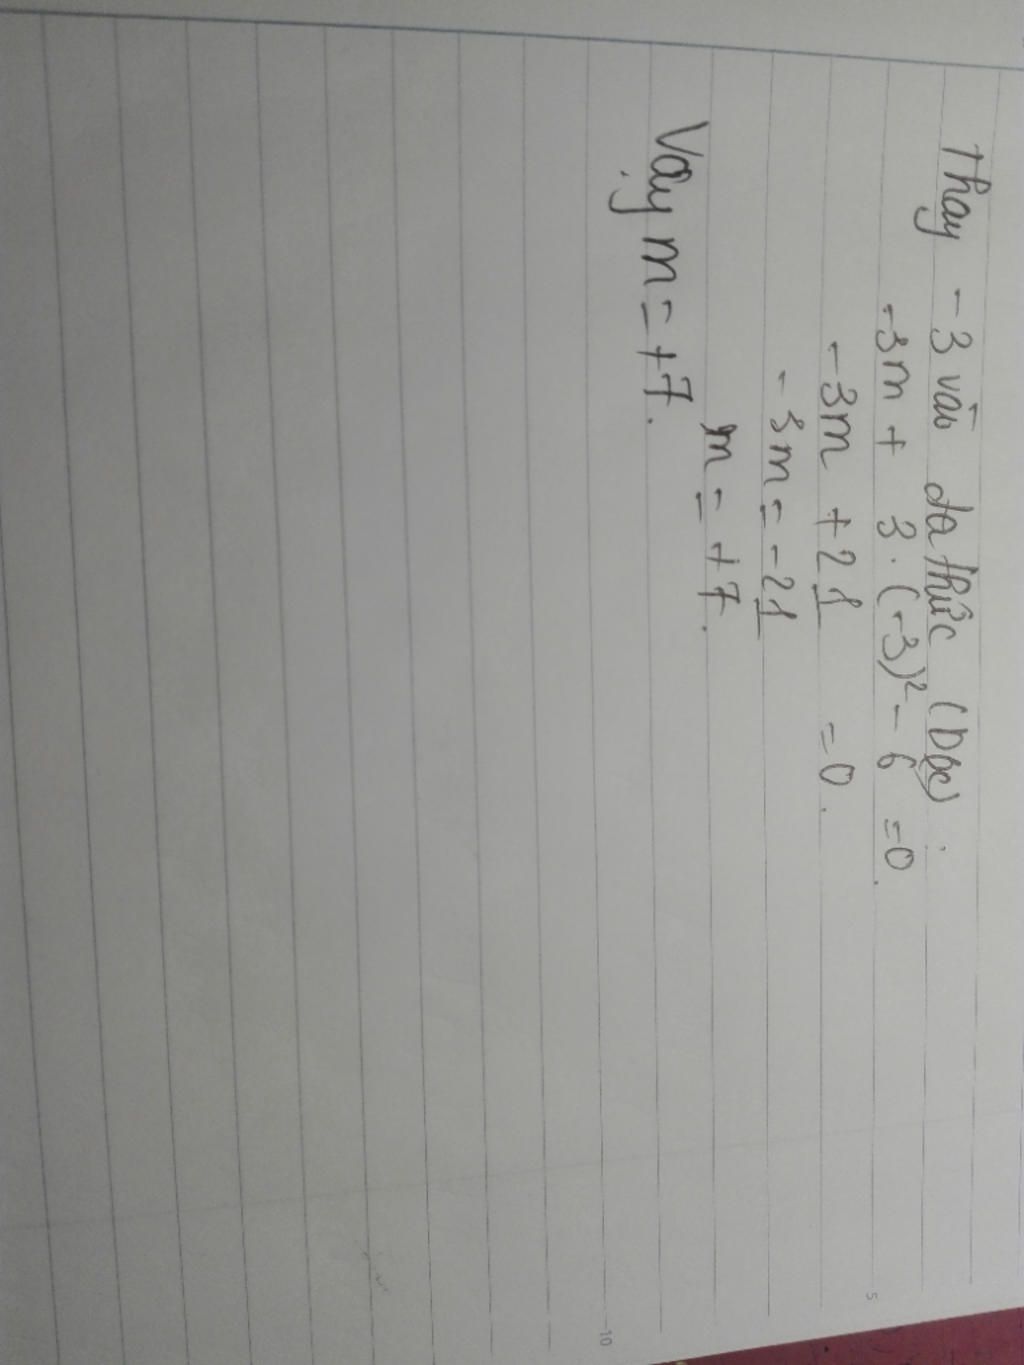 Thay -3 vào đa thức (Dbc) :
-3m + 3 . (-3)² - 6 = 0.
-3m + 21 = 0.
-3m = -21
m = +7.
Vậy m = +7.
5
10